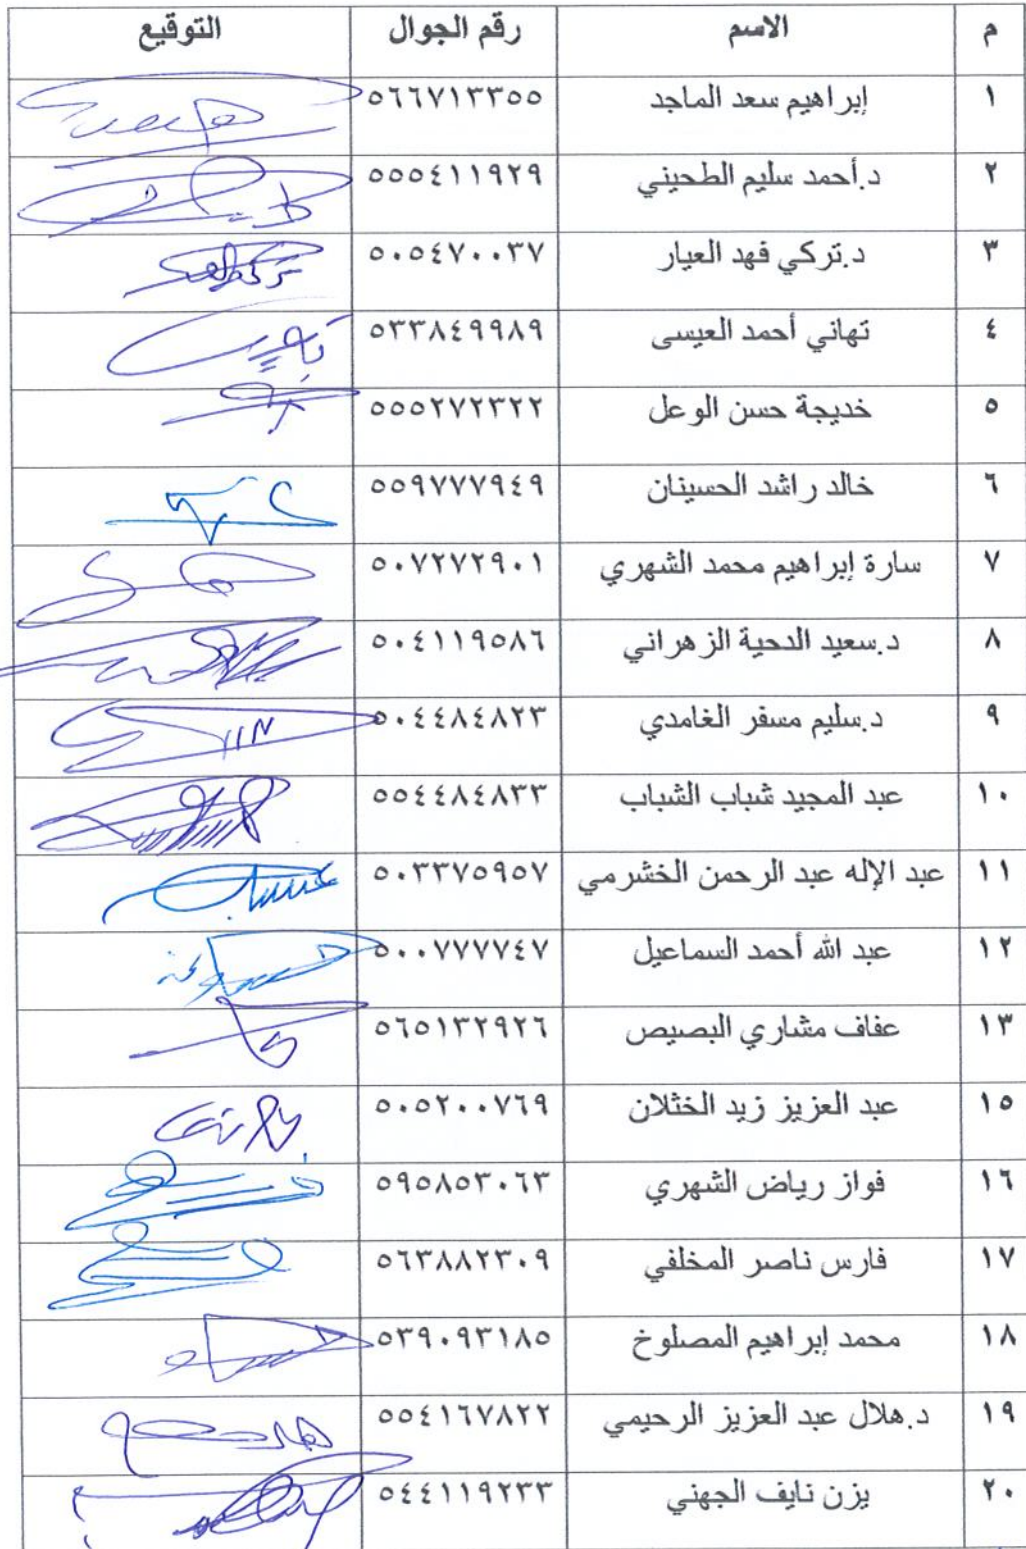 م الاسم رقم الجوال التوقيع
١ إبراهيم سعد الماجد ٥٦٦٧١٣٣٥٥
٢ د.أحمد سليم الطحيني ٥٥٥٤١١٩٢٩
٣ د.تركي فهد العيار ٥٠٥٤٧٠٠٣٧
٤ تهاني أحمد العيسى ٥٣٣٨٤٩٩٨٩
٥ خديجة حسن الوعل ٥٥٥٢٧٢٣٢٢
٦ خالد راشد الحسينان ٥٥٩٧٧٧٩٤٩
٧ سارة إبراهيم محمد الشهري ٥٠٧٢٧٢٩٠١
٨ د.سعيد الدحية الزهراني ٥٠٤١١٩٥٨٦
٩ د.سليم مسفر الغامدي ٥٠٤٤٨٤٨٢٣
١٠ عبد المجيد شباب الشباب ٥٥٤٤٨٤٨٣٣
١١ عبد الإله عبد الرحمن الخشرمي ٥٠٣٣٧٥٩٥٧
١٢ عبد الله أحمد السماعيل ٥٠٠٧٧٧٧٤٧
١٣ عفاف مشاري البصيص ٥٦٥١٣٢٩٢٦
١٥ عبد العزيز زيد الخثلان ٥٠٥٢٠٠٧٦٩
١٦ فواز رياض الشهري ٥٩٥٨٥٣٠٦٣
١٧ فارس ناصر المخلفي ٥٦٣٨٨٢٣٠٩
١٨ محمد إبراهيم المصلوخ ٥٣٩٠٩٣١٨٥
١٩ د.هلال عبد العزيز الرحيمي ٥٥٤١٦٧٨٢٢
٢٠ يزن نايف الجهني ٥٤٤١١٩٢٣٣